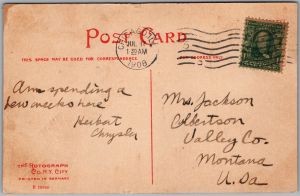 POST CARD
THIS SPACE MAY BE USED FOR CORRESPONDENCE
CHICAGO, ILL.
JUL
1 30 AM
1908
Am spending a
few weeks here
Herbert
Chrysler
Mrs. Jackson
Culbertson
Valley Co.
Montana
U.S.a
THE ROTOGRAPH
CO. N.Y. CITY
PRINTED IN GERMANY